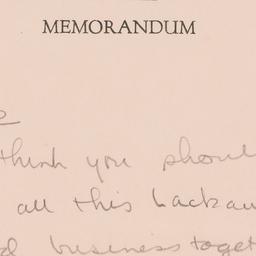 MEMORANDUM
think you shoul
all this backau
business toget